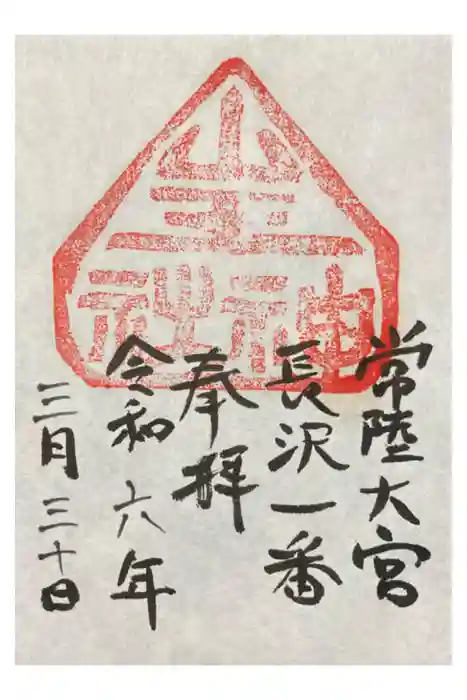 山
王
神社
常陸大宮
長沢一番
奉拝
令和六年
三月三十日